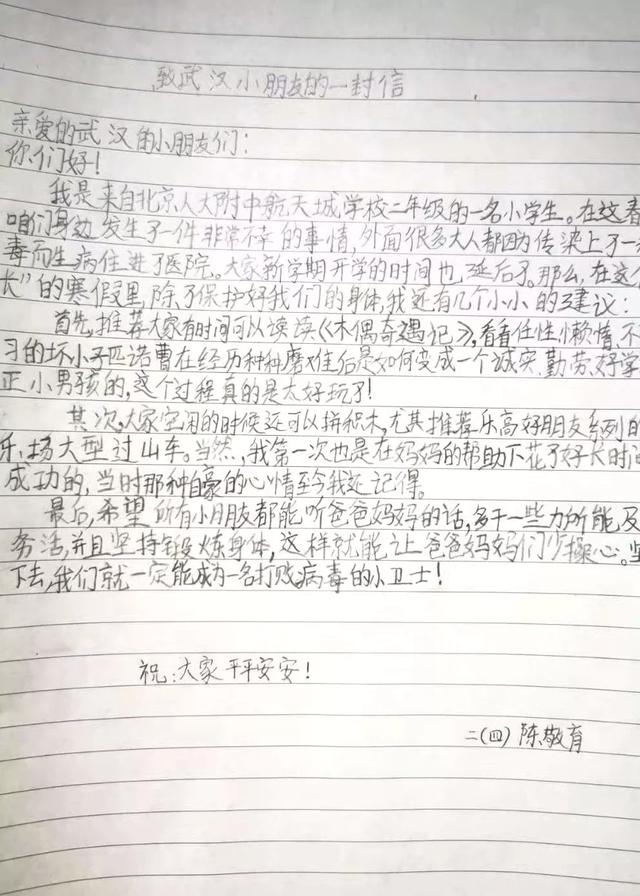 致武汉小朋友的一封信
亲爱的武汉的小朋友们：
你们好！
我是来自北京人大附中航天城学校二年级的一名小学生。在这春
咱们身边发生了一件非常不幸的事情，外面很多大人都因为传染上了一
毒而生病住进了医院。大家新学期开学的时间也延后了。那么，在这
长”的寒假里，除了保护好我们的身体，我还有几个小小的建议：
首先，推荐大家有时间可以读读《木偶奇遇记》，看看任性、懒惰、不
习的坏小子匹诺曹在经历种种磨难后是如何变成一个诚实、勤劳、好学
正小男孩的，这个过程真的是太好玩了！
其次，大家空闲的时候还可以拼积木，尤其推荐乐高好朋友系列的
乐场大型过山车。当然，我第一次也是在妈妈的帮助下花了好长时间
成功的，当时那种自豪的心情至今我还记得。
最后，希望所有小朋友都能听爸爸妈妈的话，多干一些力所能及
务活，并且坚持锻炼身体，这样就能让爸爸妈妈们少操心。坚
下去，我们就一定能成为一名打败病毒的小卫士！
祝：大家平平安安！
二(四) 陈敬育